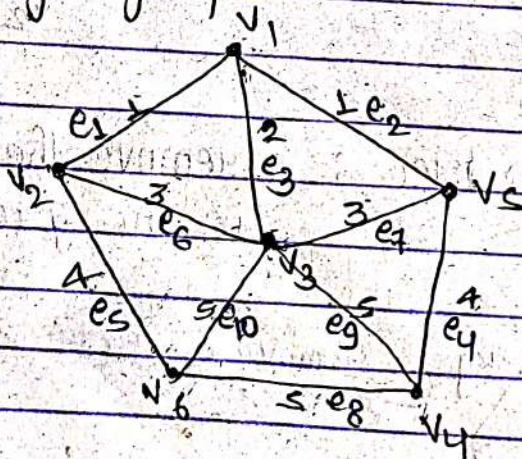 V1
e1 1
1 e2
2
e3
V2
V5
3
e6
3
e7
V3
4
e5
5 e10
5
e9
4
e4
V6
5 e8
V4